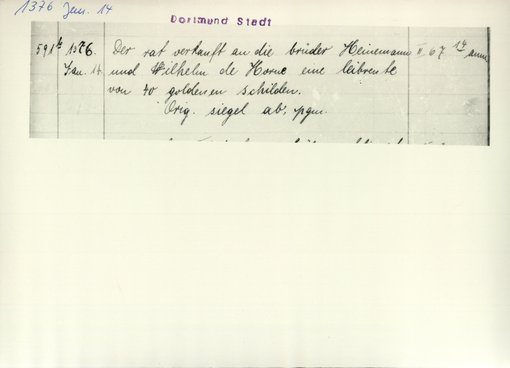 1376 Jan. 14
Dortmund Stadt
591b 1376. Der rat verkauft an die brüder Heinemann n. 67
Jan. 14 und Wilhelm de Horne eine leibrente
von 40 goldenen schilden.
Orig. siegel ab, pgm.